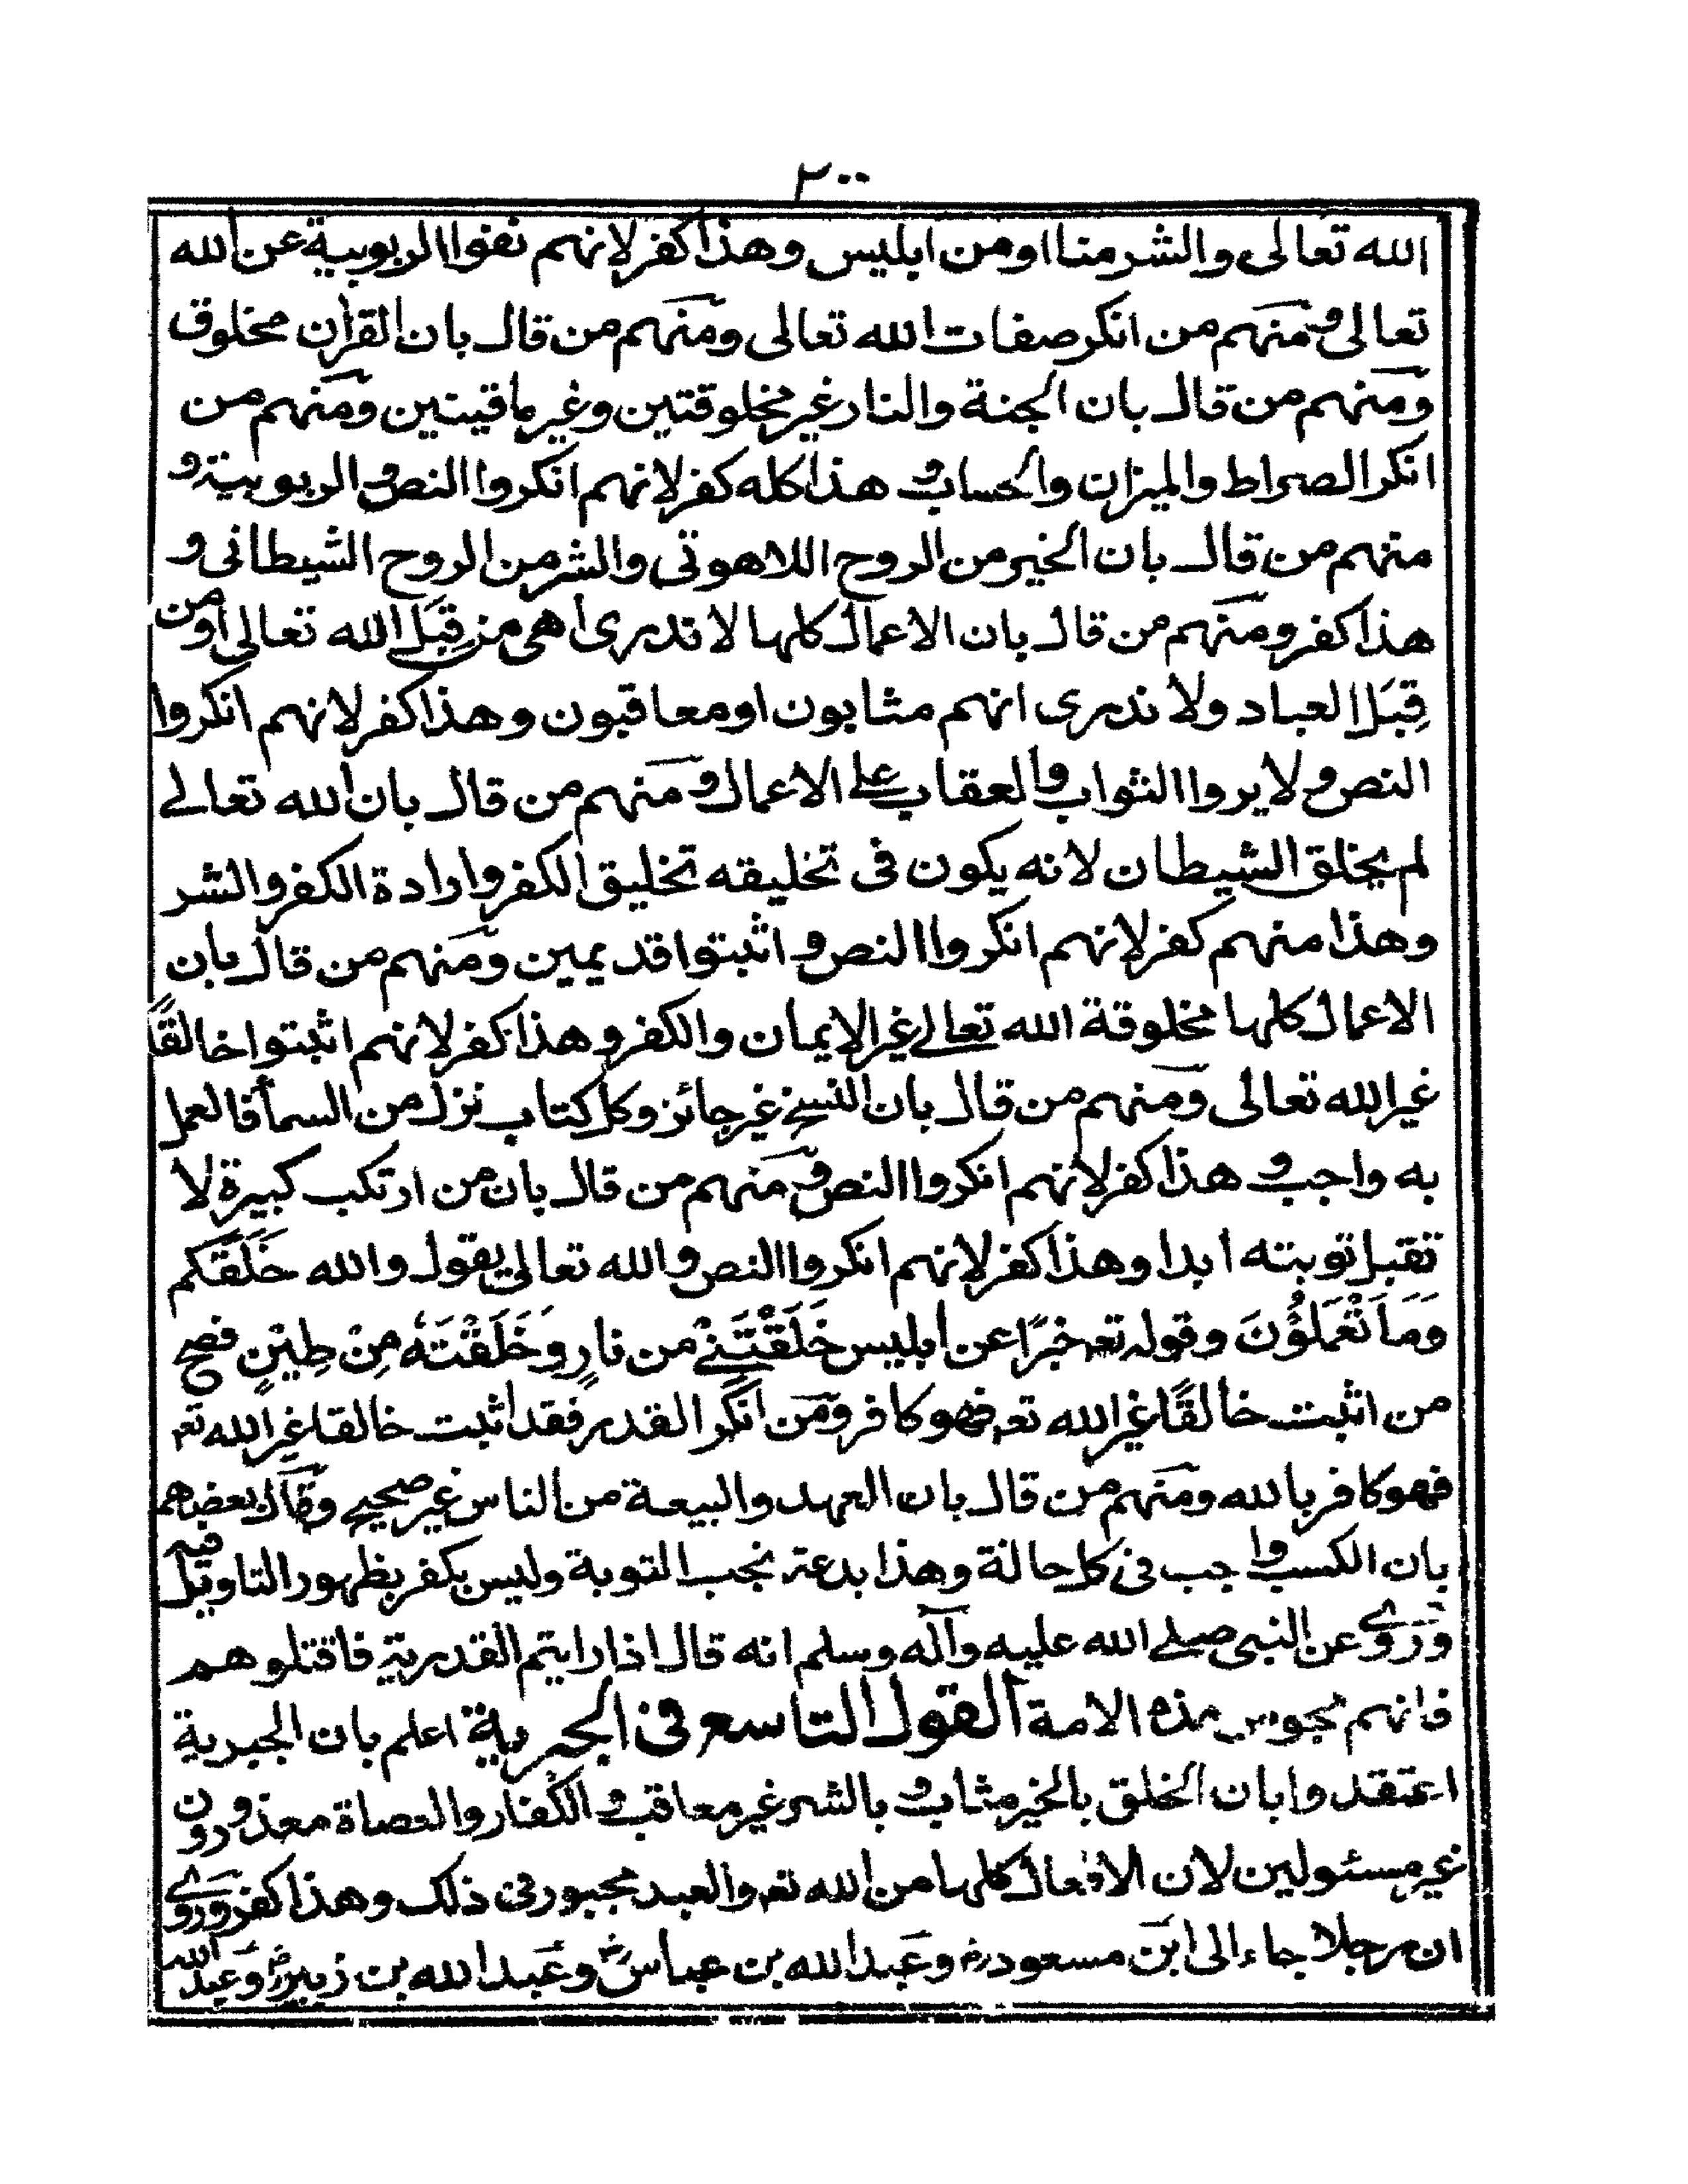 ٢٠٠
الله تعالى والشر منا اومن ابليس وهذا كفر لانهم نفوا الربوبية عن الله
تعالى ومنهم من انكر صفات الله تعالى ومنهم من قال بان القران مخلوق
ومنهم من قال بان الجنة والنار غير مخلوقتين وغير باقيتين ومنهم من
انكر الصراط والميزان والحساب و هذا كله كفر لانهم انكروا النص و الربوبية و
منهم من قال بان الخير من الروح اللاهوتى والشر من الروح الشيطانى و
هذا كفر ومنهم من قال بان الاعمال كلها لا ندرى اهى من قِبَل الله تعالى اومن
قِبَل العباد ولا ندرى انهم مثابون او معاقبون وهذا كفر لانهم انكروا
النص و لا يروا الثواب والعقاب على الاعمال ومنهم من قال بان الله تعالے
لم يخلق الشيطان لانه يكون فى تخليقه تخليق الكفر وارادة الكفر والشر
وهذا منهم كفر لانهم انكروا النص و اثبتوا قديمين ومنهم من قال بان
الاعمال كلها مخلوقة الله تعالے غير الايمان والكفر وهذا كفر لانهم اثبتوا خالقًا
غير الله تعالى ومنهم من قال بان النسخ غير جائز وكل كتاب نزل من السماء فالعمل
به واجب و هذا كفر لانهم انكروا النص ومنهم من قال بان من ارتكب كبيرة لا
تقبل توبته ابدا وهذا كفر لانهم انكروا النص والله تعالى يقول والله خَلَقَكم
وَمَا تَعْمَلُوْنَ وقوله تعہ خبرًا عن ابليس خَلَقْتَنِىْ من نارٍ وخَلَقْتَهٗ مِنْ طِيْنٍ فصح
من اثبت خالقًا غير الله تعہ فهو كافر ومن انكر القدر فقد اثبت خالقا غير الله تعہ
فهو كافر بالله ومنهم من قال بان العهد والبيعة من الناس غير صحيح وقال بعضهم
بان الكسب واجب فى كل حالة وهذا بدعة نجب التوبة وليس بكفر بظهور التاويل فيه
ورُوى عن النبى صلے الله عليه وآله وسلم انه قال اذا رايتم القدرية فاقتلوهم
فانهم مجوس هذه الامة القول التاسع فى الجبرية اعلم بان الجبرية
اعتقدوا بان الخلق بالخير مثاب و بالشر غير معاقب و الكفار والعصاة معذورون
غير مسئولين لان الافعال كلها من الله تعہ والعبد مجبور فى ذلك وهذا كفر وروى
ان رجلا جاء الى ابن مسعود رض وعبد الله بن عباس رض وعبد الله بن زبير رض وعبد الله